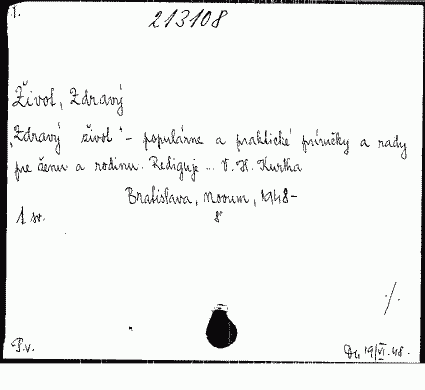 1.
213108
Život, Zdravý
„Zdravý život" - populárne a praktické príručky a rady
pre ženu a rodinu. Rediguje ... V. H. Kurtha
Bratislava, Novum, 1948-
1 sv. 8°
%
P.v. Du 19/VI.48.